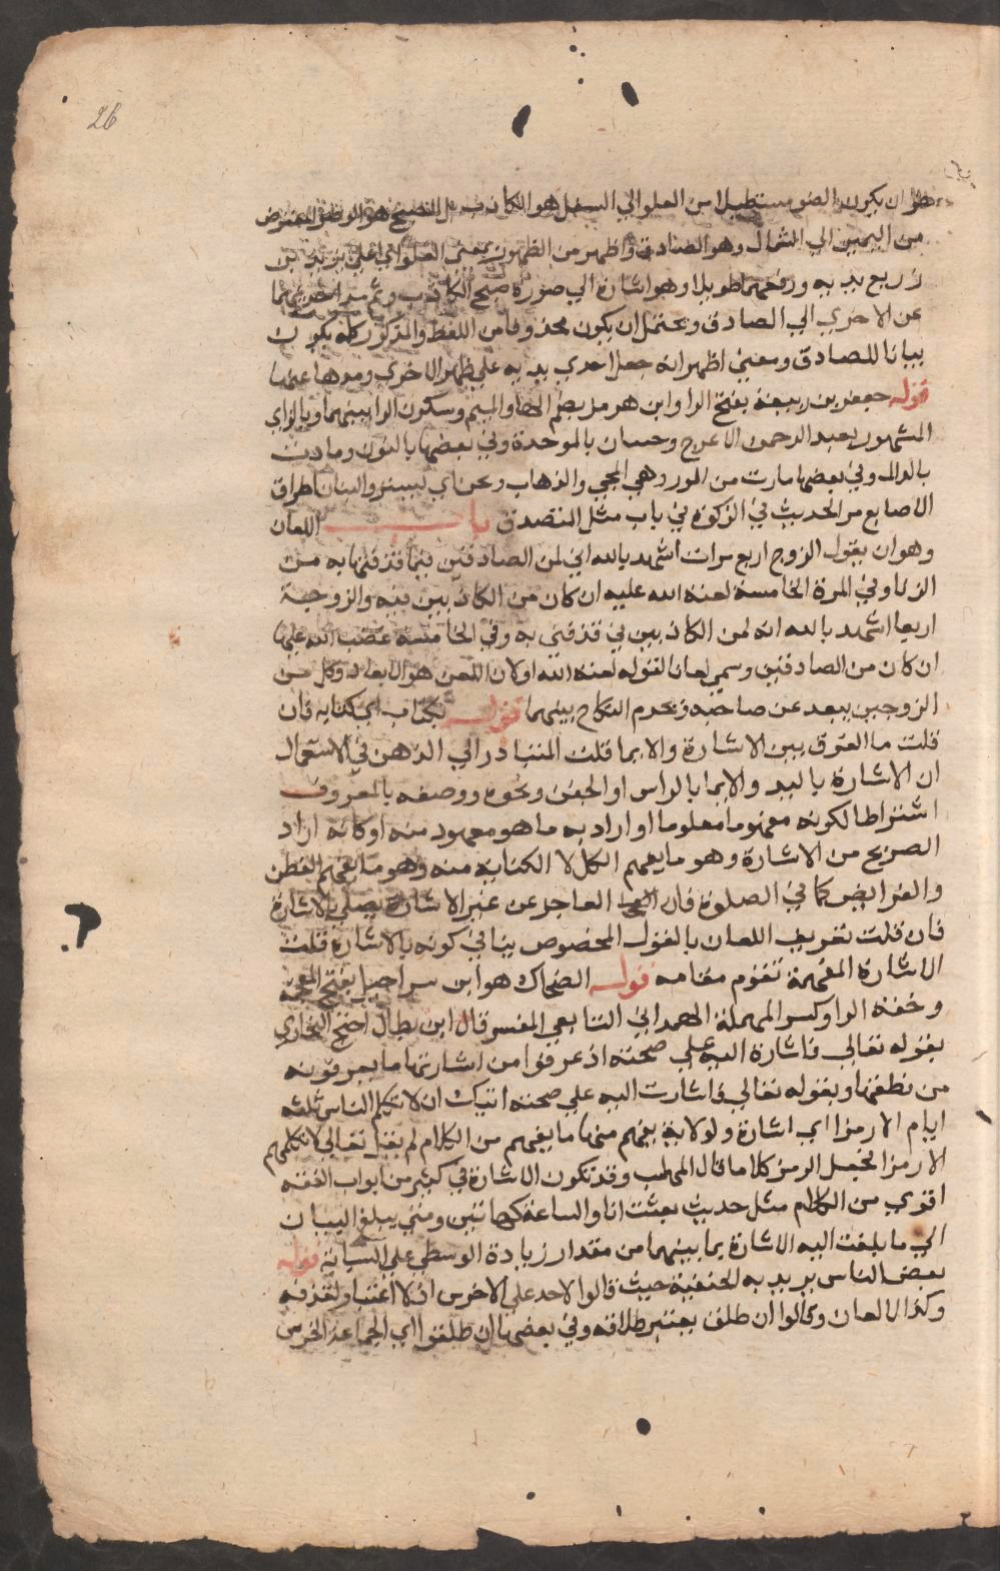 26
هو ان يكون الضو مستطيلا من العلو الي السفل هو الكاذب بل الصبح هو الضو المعترض
من اليمين الي الشمال وهو الصادق واظهر من الظهور بمعني العلو اي اعلي يزيد بن
زريع يديه ورفعهما طويلا وهو اشارة الي صورة صبح الكاذب ثم مد احديهما
عن الاخري الي الصادق ويحتمل ان يكون محذوفا من اللفظ والمذكور كله يكون
بيانا للصادق ومعني اظهر انه جعل احدي يديه علي ظهر الاخري ومدها عنها
قوله جعفر بن ربيعة بفتح الرا وابن هرمز بضم الها والميم وسكون الرا بينهما وبالزاي
المشهور بعبد الرحمن الاعرج وجبتان بالموحدة وفي بعضها بالنون ومادت
بالدال وفي بعضها مارت من المور وهي المجي والذهاب وتجن اي تستر والبنان اطراف
الاصابع مر الحديث في الزكوة في باب مثل المتصدق باب اللعان
وهو ان يقول الزوج اربع مرات اشهد بالله اني لمن الصادقين فيما قذفتها به من
الزنا وفي المرة الخامسة لعنة الله عليه ان كان من الكاذبين فيه والزوجة
اربعا اشهد بالله انه لمن الكاذبين في قذفني به وفي الخامسة غضب الله عليها
ان كان من الصادقين وسمي لعانا لقوله لعنة الله او لان اللعن هو الابعاد وكل من
الزوجين يبعد عن صاحبه ويحرم النكاح بينهما قوله بكتاب اي كتابه فان
قلت ما الفرق بين الاشارة والايما قلت المتبادر الي الذهن في الاستعمال
ان الاشارة باليد والايما بالراس او الجفن ونحوه ووصفه بالمعروف
اشتراطا لكونه مفهوما معلوما او اراد به ما هو معهود منه او كانه اراد
الصريح من الاشارة وهو ما يفهم الكل لا الكناية منه وهو ما يفهم الفطن
والفرائض كما في الصلوة فان العاجز عن غير الاشارة يصلي بالاشارة
فان قلت تعريف اللعان بالقول المخصوص ينافي كونه بالاشارة قلت
الاشارة المفهمة تقوم مقامه قوله الضحاك هو ابن شراحيل بفتح المعجمة
وخفة الرا وكسر المهملة الهمداني التابعي المفسر قال ابن بطال احتج البخاري
بقوله تعالي فاشارة اليه علي صحته اذ عرفوا من اشارتها ما يعرفونه
من نطقها وبقوله تعالي فاشارت اليه علي صحته ايتك ان لا تكلم الناس ثلثة
ايام الا رمزا اي اشارة ولولا انه يفهم منها ما يفهم من الكلام لم يقل تعالي لا تكلمهم
الا رمزا فجعل الرمز كلاما قال المهلب وقد تكون الاشارة في كثير من ابواب الفقه
اقوي من الكلام مثل حديث بعثت انا والساعة كهاتين ومتي يبلغ البيان
الي ما بلغت اليه الاشارة بما بينهما من مقدار زيادة الوسطي علي السبابة قوله
بعض الناس يريد به الحنفية حيث قالوا لا حد علي الاخرس اذ لا اعتبار لقذفه
وكذا اللعان وقالوا ان طلق يعتبر طلاقه وفي بعضها ان طلقوا اي الجماعة الخرس